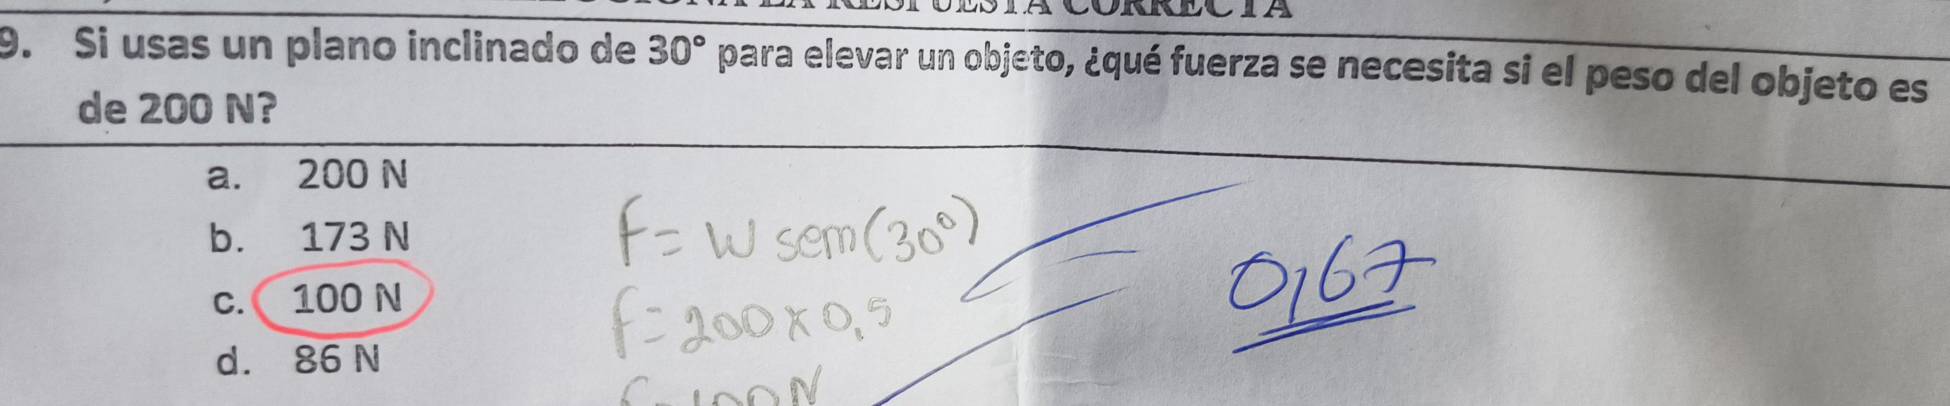 LA RESPUESTA CORRECTA
9. Si usas un plano inclinado de 30° para elevar un objeto, ¿qué fuerza se necesita si el peso del objeto es
de 200 N?
a. 200 N
b. 173 N
c. 100 N
d. 86 N
F = W sem(30°)
f = 200 x 0,5
f = 100 N
0,67